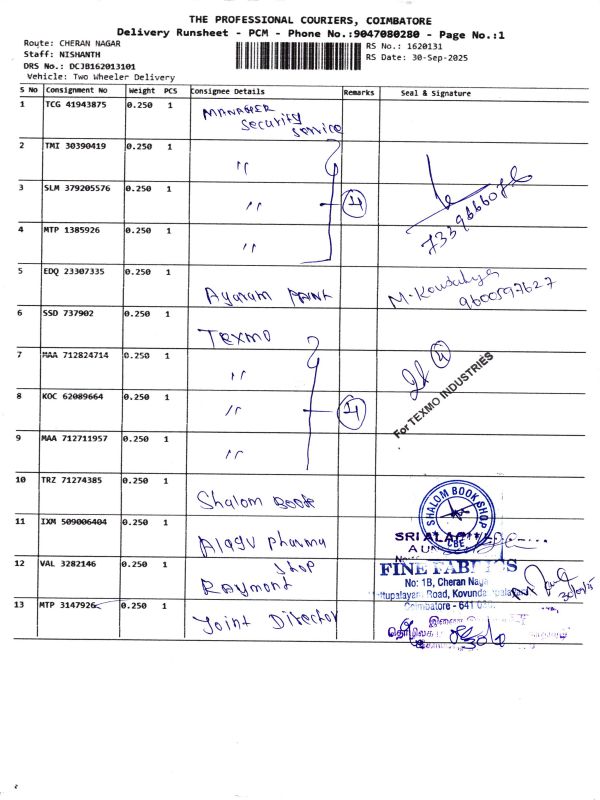 THE PROFESSIONAL COURIERS, COIMBATORE
Delivery Runsheet - PCM - Phone No.:9047080280 - Page No.:1
Route: CHERAN NAGAR
RS No.: 1620131
Staff: NISHANTH
RS Date: 30-Sep-2025
DRS No.: DCJB162013101
Vehicle: Two Wheeler Delivery
S No Consignment No Weight PCS Consignee Details Remarks Seal & Signature
1 TCG 41943875 0.250 1 MANAGER
Security
Service
2 TMI 30390419 0.250 1 "
3 SLM 379205576 0.250 1 " 4
4 MTP 1385926 0.250 1 "
5 EDQ 23307335 0.250 1 M. Kousalya
9600597627
6 SSD 737902 0.250 1 Texmo
7 MAA 712824714 0.250 1 " 4
For TEXMO INDUSTRIES
8 KOC 62089664 0.250 1 " 4
9 MAA 712711957 0.250 1 "
10 TRZ 71274385 0.250 1 Shalom Book SHALOM BOOK SHOP
CBE
11 IXM 509006404 0.250 1 Alagu pharma SRI ALAG
12 VAL 3282146 0.250 1 Shop
Raymont FINE FABRICS
No: 1B, Cheran Naga
ttupalayam Road, Kovunda palaya
Coimbatore - 641 0
13 MTP 3147926 0.250 1 Joint Director